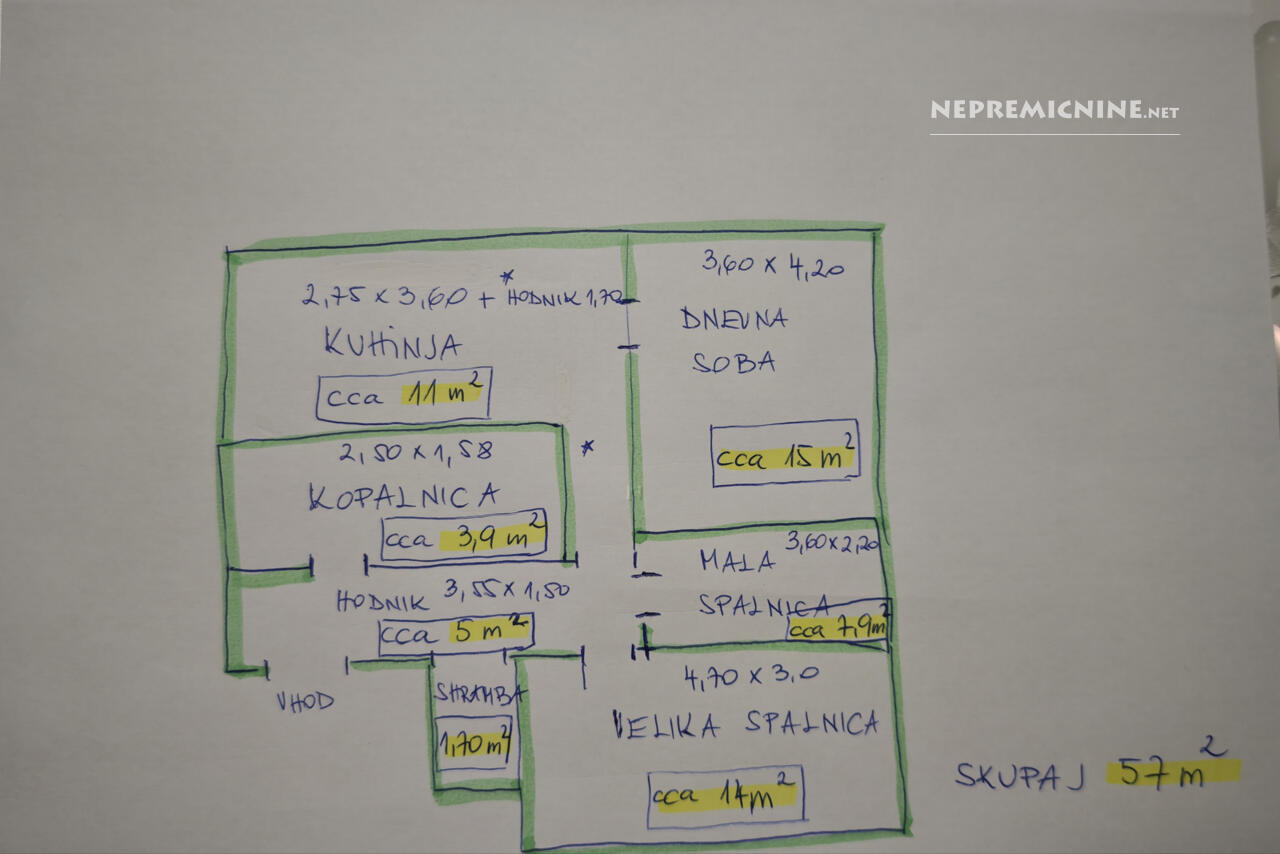 NEPREMICNINE.NET
2,75 x 3,60 + *HODNIK 1,70
KUHINJA
cca 11 m²
3,60 x 4,20
DNEVNA
SOBA
cca 15 m²
2,50 x 1,58
KOPALNICA
cca 3,9 m²
*
HODNIK 3,55 x 1,50
cca 5 m²
MALA 3,60 x 2,20
SPALNICA
cca 7,9 m²
VHOD
SHRAMBA
1,70 m²
4,70 x 3,0
VELIKA SPALNICA
cca 14 m²
SKUPAJ 57 m²